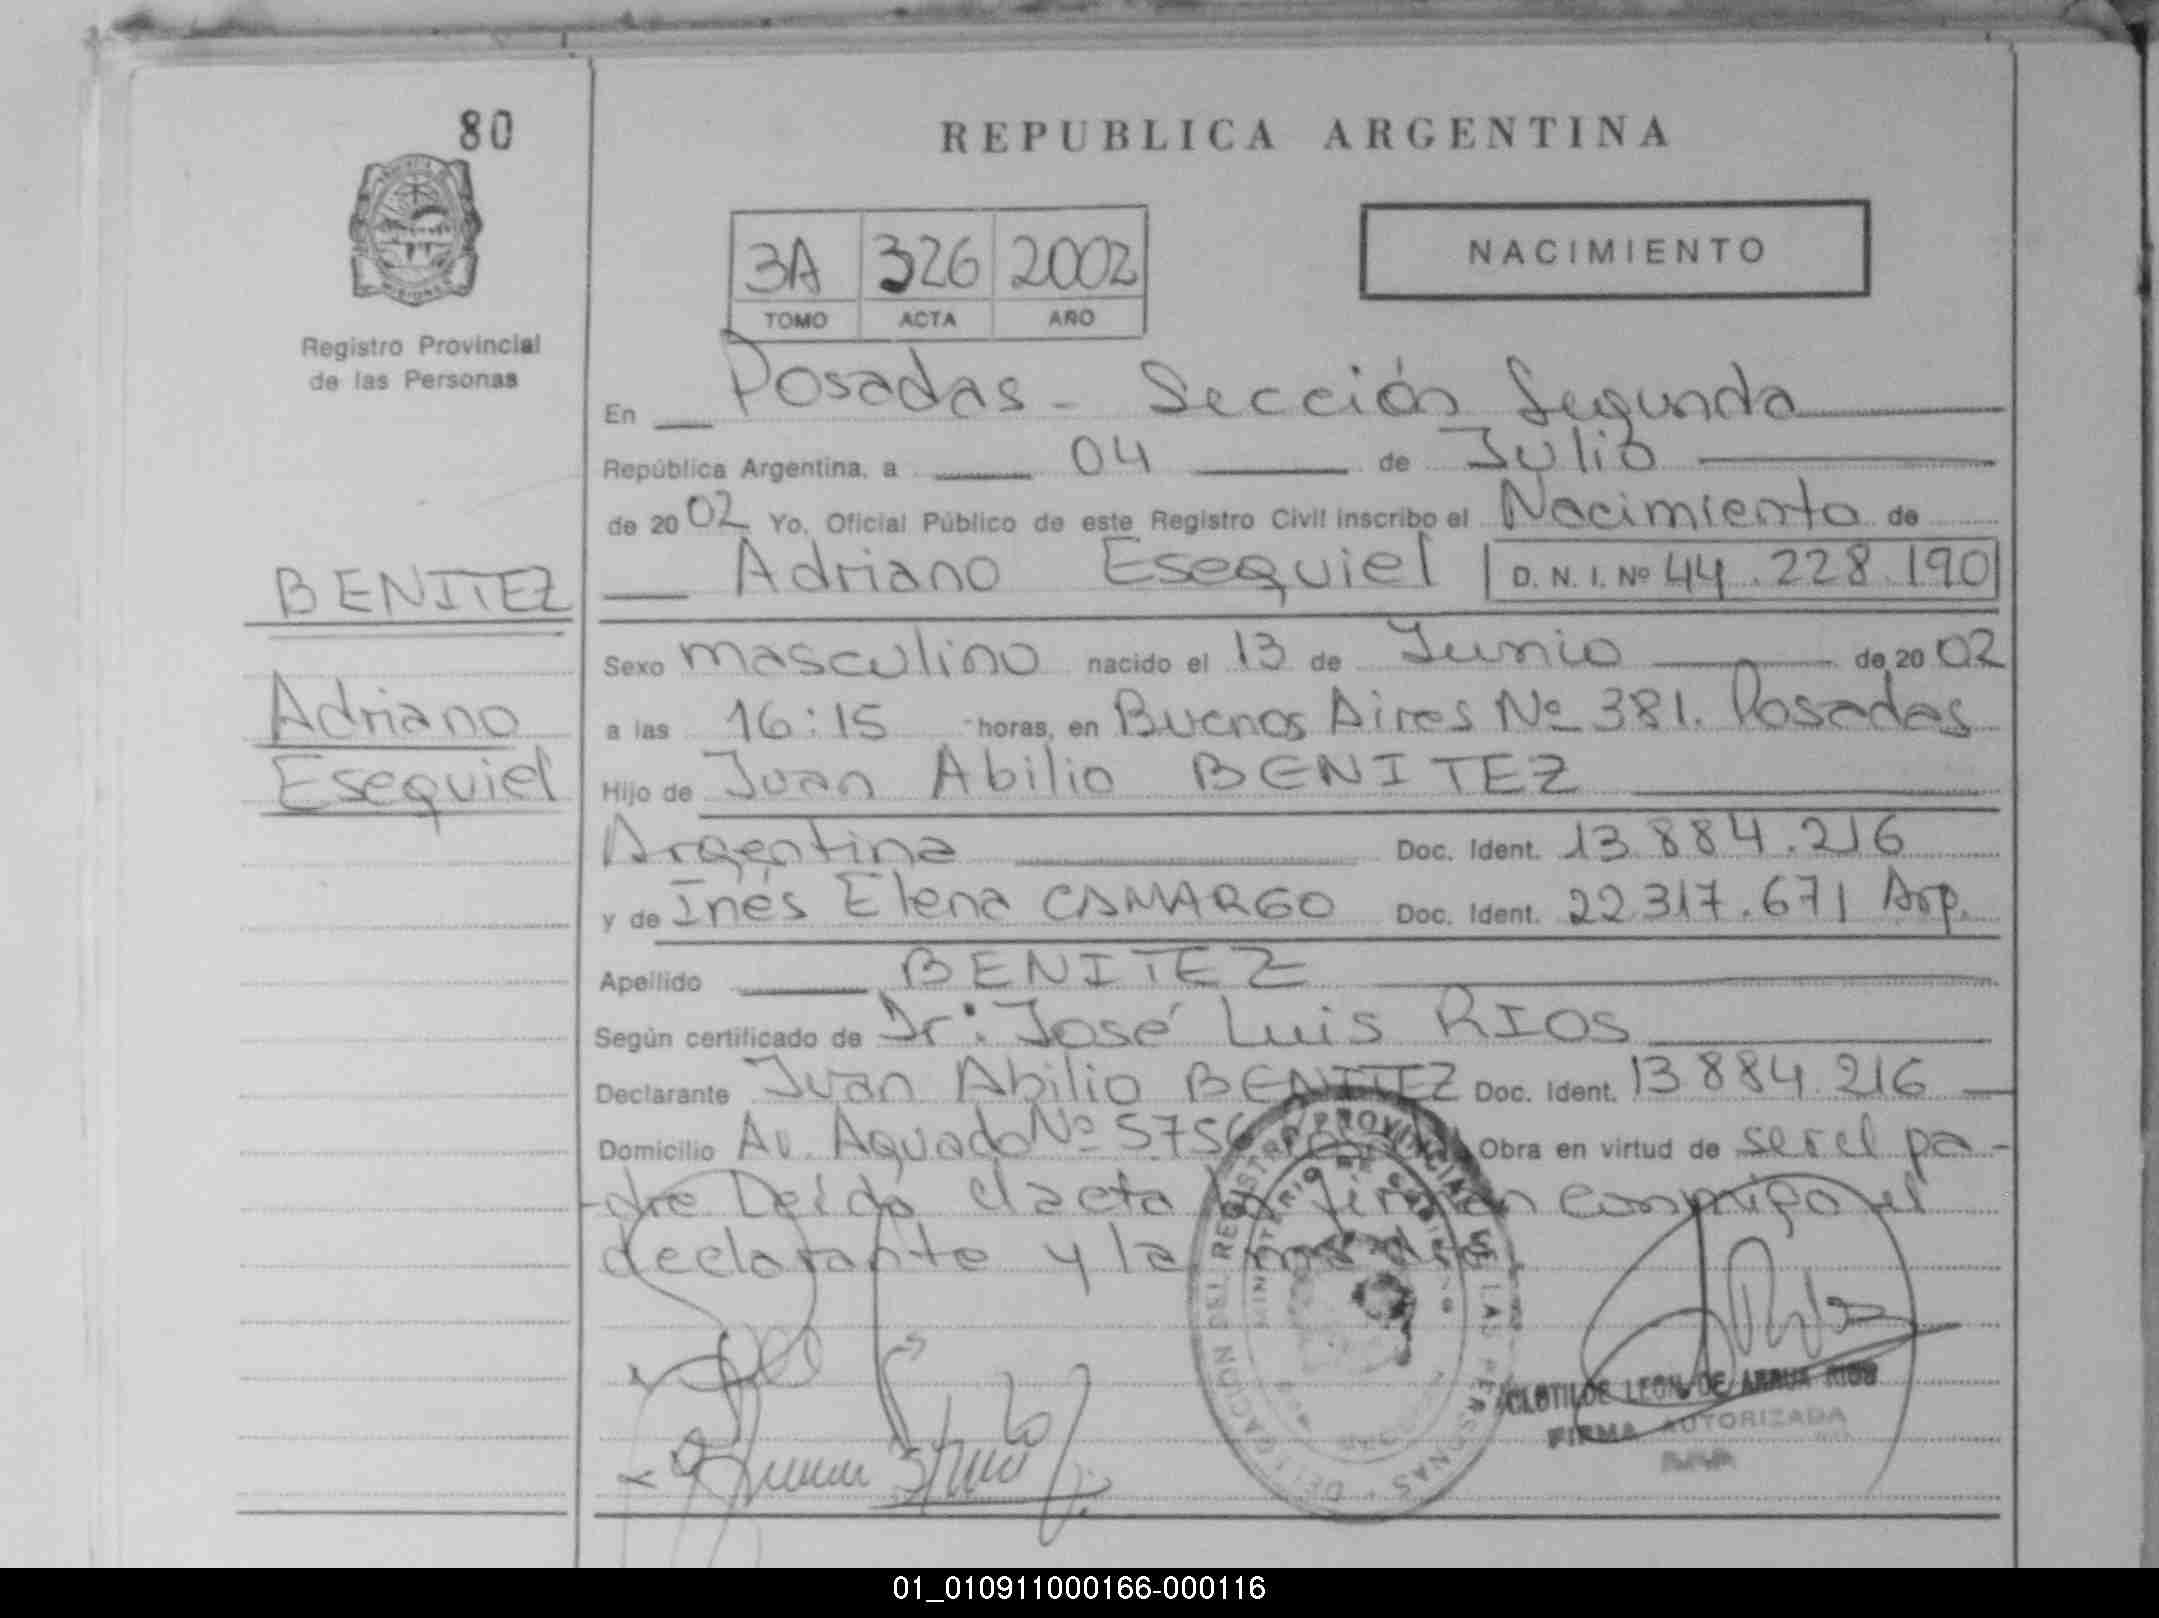 80
REPUBLICA ARGENTINA
3A 326 2002
TOMO ACTA AÑO
NACIMIENTO
Registro Provincial
de las Personas
En Posadas - Sección Segunda
República Argentina, a 04 de Julio
de 2002 Yo, Oficial Público de este Registro Civil inscribo el Nacimiento de
Adriano Esequiel D. N. I. Nº 44.228.190
BENITEZ
Adriano
Esequiel
Sexo masculino nacido el 13 de Junio de 2002
a las 16:15 horas, en Buenos Aires Nº 381. Posadas
Hijo de Juan Abilio BENITEZ
Argentina Doc. Ident. 13.884.216
y de Inés Elena CAMARGO Doc. Ident. 22.317.671 Arg.
Apellido BENITEZ
Según certificado de Dr: José Luis RIOS
Declarante Juan Abilio BENITEZ Doc. Ident. 13.884.216
Domicilio Av. Aguado Nº 5756 Obra en virtud de ser el pa-
-dre Leída el acta la firman conmigo el
declarante y la madre
DELEGACION DEL REGISTRO PROVINCIAL DE LAS PERSONAS
MINISTERIO DE GOBIERNO
CLOTILDE LEON DE ARRUA RIOS
FIRMA AUTORIZADA
01_010911000166-000116